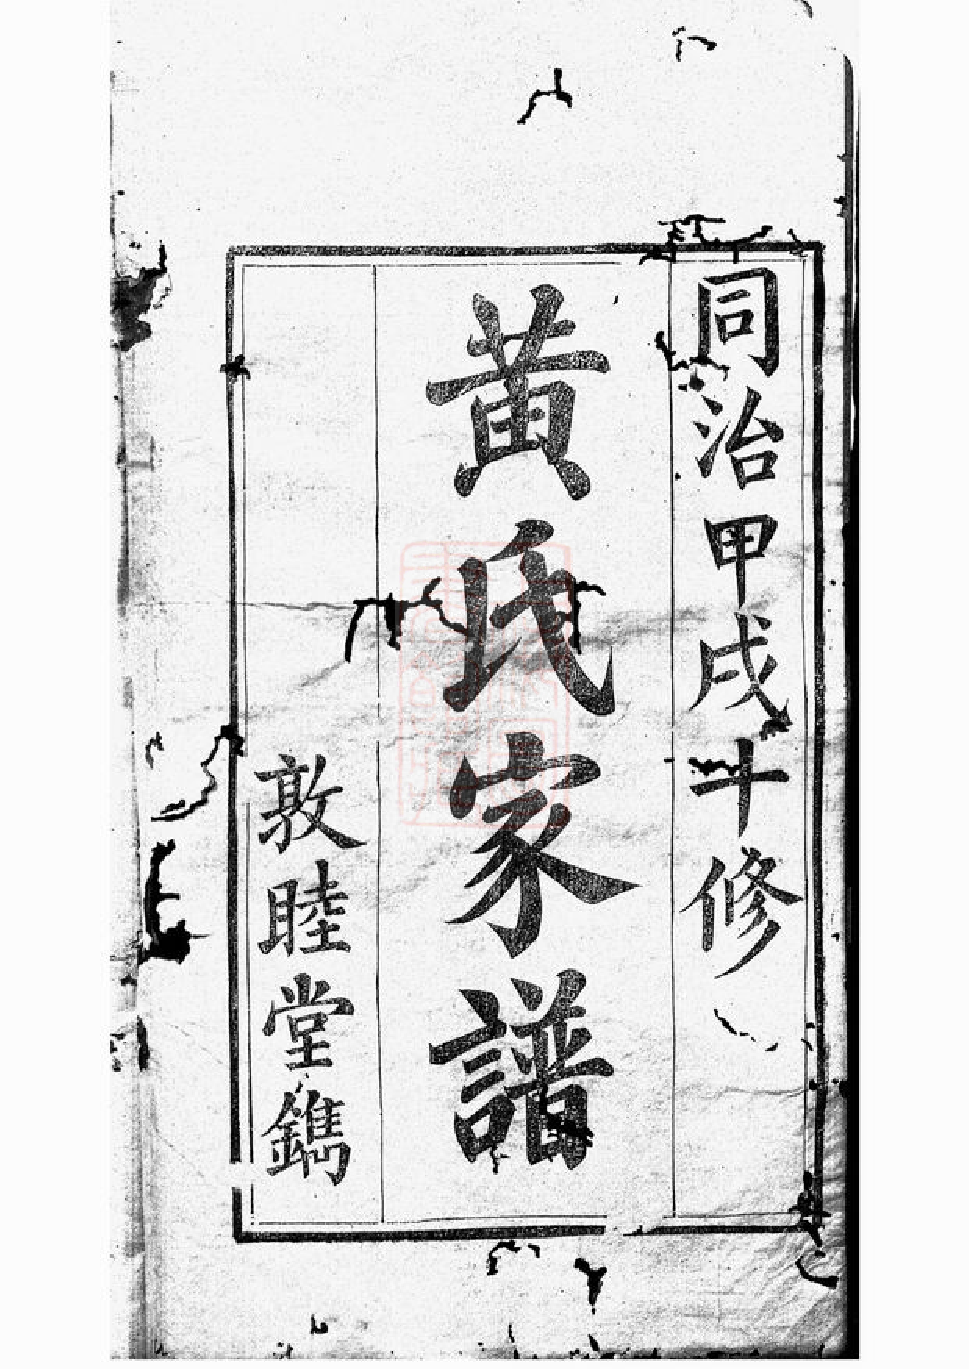 同治甲戌斗修
黃氏家譜
敦睦堂鐫